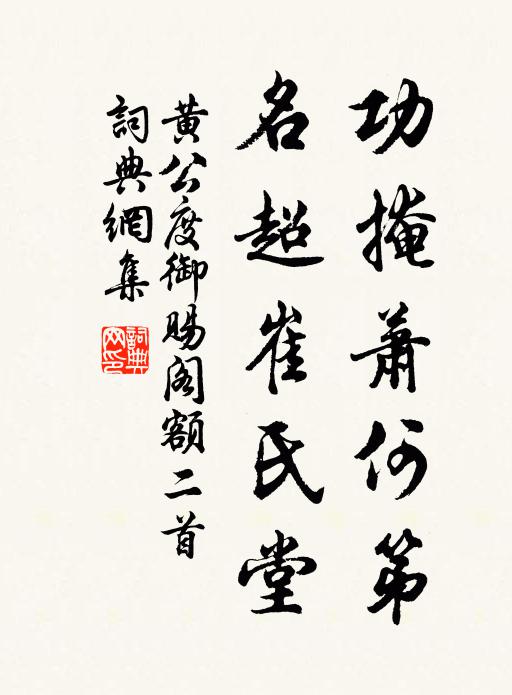 功掩蕭何第
名超崔氏堂
黄公度御賜閣額二首
詞典網集
詞典网印